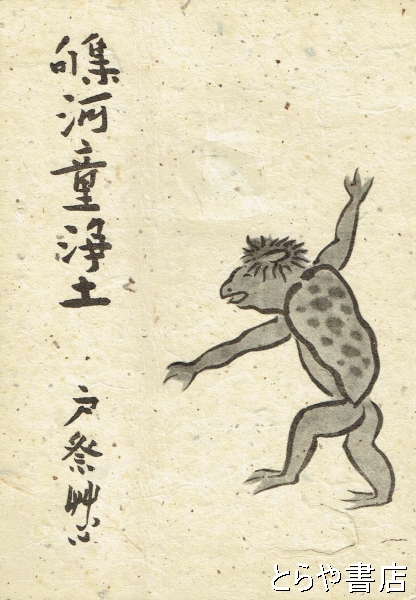 河童浄土
戸祭
とらや書店